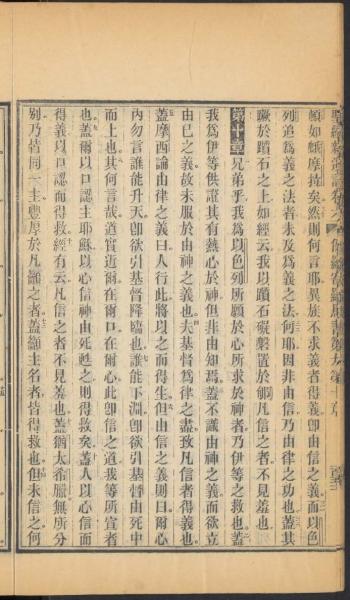 頓如郇摩拉矣然則何言耶異族不求義者得義卽由信之義而以色
列追爲義之法者未及爲義之法何耶因非由信乃由律之功也蓋其
蹶於躓石之上如經云我以躓石礙磐置於郇凡信之者不見羞也
第十章兄弟乎我爲以色列所願於心所求於神者乃伊等之救也蓋
我爲伊等供證其有熱心於神但非由知焉蓋不識由神之義而欲立
由已之義故未服於由神之義也夫基督爲律之盡致凡信者得義也
蓋摩西論由律之義曰人行此將以之而得生但由信之義則曰爾心
內勿言誰能升天卽欲引基督降臨也誰能下淵卽欲引基督由死中
而上也其何言哉道實近爾在爾口在爾心此卽信之道我等所宣者
也蓋爾以口認主耶穌以心信神由死甦之則得救矣蓋人以心信而
得義以口認而得救經有云凡信之者不見羞也蓋猶太希臘無所分
別乃皆同一主豐厚於凡籲之者蓋籲主名者皆得救也但未信之何